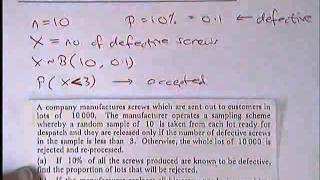 n = 10 P = 10% = 0.1 ← defective
X = no. of defective screws
X ~ B(10, 0.1)
P(X<3) → accepted
A company manufactures screws which are sent out to customers in
lots of 10 000. The manufacturer operates a sampling scheme
whereby a random sample of 10 is taken from each lot ready for
despatch and they are released only if the number of defective screws
in the sample is less than 3. Otherwise, the whole lot of 10 000 is
rejected and re-processed.
(a) If 10% of all the screws produced are known to be defective,
find the proportion of lots that will be rejected.